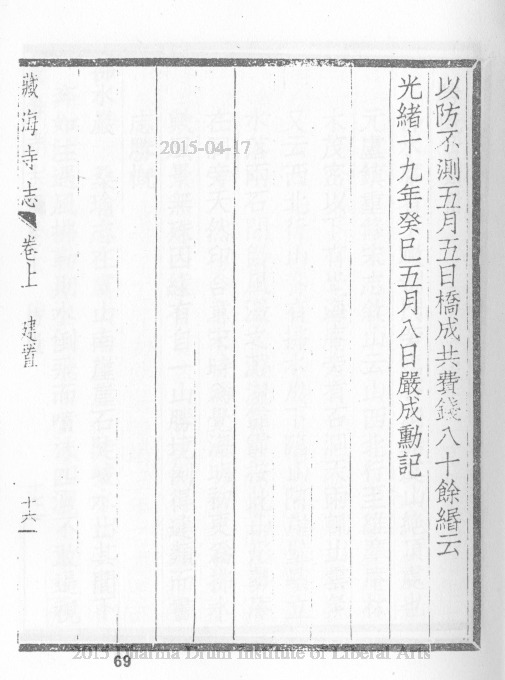 以防不測五月五日橋成共費錢八十餘緡云
光緒十九年癸巳五月八日嚴成勳記
藏海寺志 卷上 建置 十六
2015-04-17
2015 Dharma Drum Institute of Liberal Arts
69